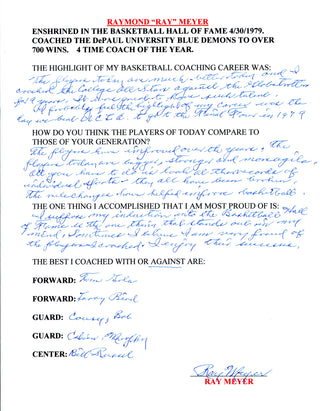 RAYMOND "RAY" MEYER
ENSHRINED IN THE BASKETBALL HALL OF FAME 4/30/1979.
COACHED THE DePAUL UNIVERSITY BLUE DEMONS TO OVER
700 WINS. 4 TIME COACH OF THE YEAR.
THE HIGHLIGHT OF MY BASKETBALL COACHING CAREER WAS:
The players today are much better today and I
coached the College All Stars against the Globetrotters
for years. It was good to have such talent.
I feel the highlight of my career was the
day we beat UCLA to go to the Final Four in 1979
HOW DO YOU THINK THE PLAYERS OF TODAY COMPARE TO
THOSE OF YOUR GENERATION?
The players have improved over the years. The
players today are bigger, stronger and more agile.
All you have to do is look at the records of
individual efforts - they all have been broken.
The rule changes have helped improve basketball.
THE ONE THING I ACCOMPLISHED THAT I AM MOST PROUD OF IS:
I suppose my induction into the Basketball Hall
of Fame is the one thing that stands out in my
mind. Sometimes I believe I am very proud of
the players I coached. I enjoy their success.
THE BEST I COACHED WITH OR AGAINST ARE:
FORWARD: Tom Gola
FORWARD: Larry Bird
GUARD: Cousy, Bob
GUARD: Calvin Murphy
CENTER: Bill Russell
Ray Meyer
RAY MEYER